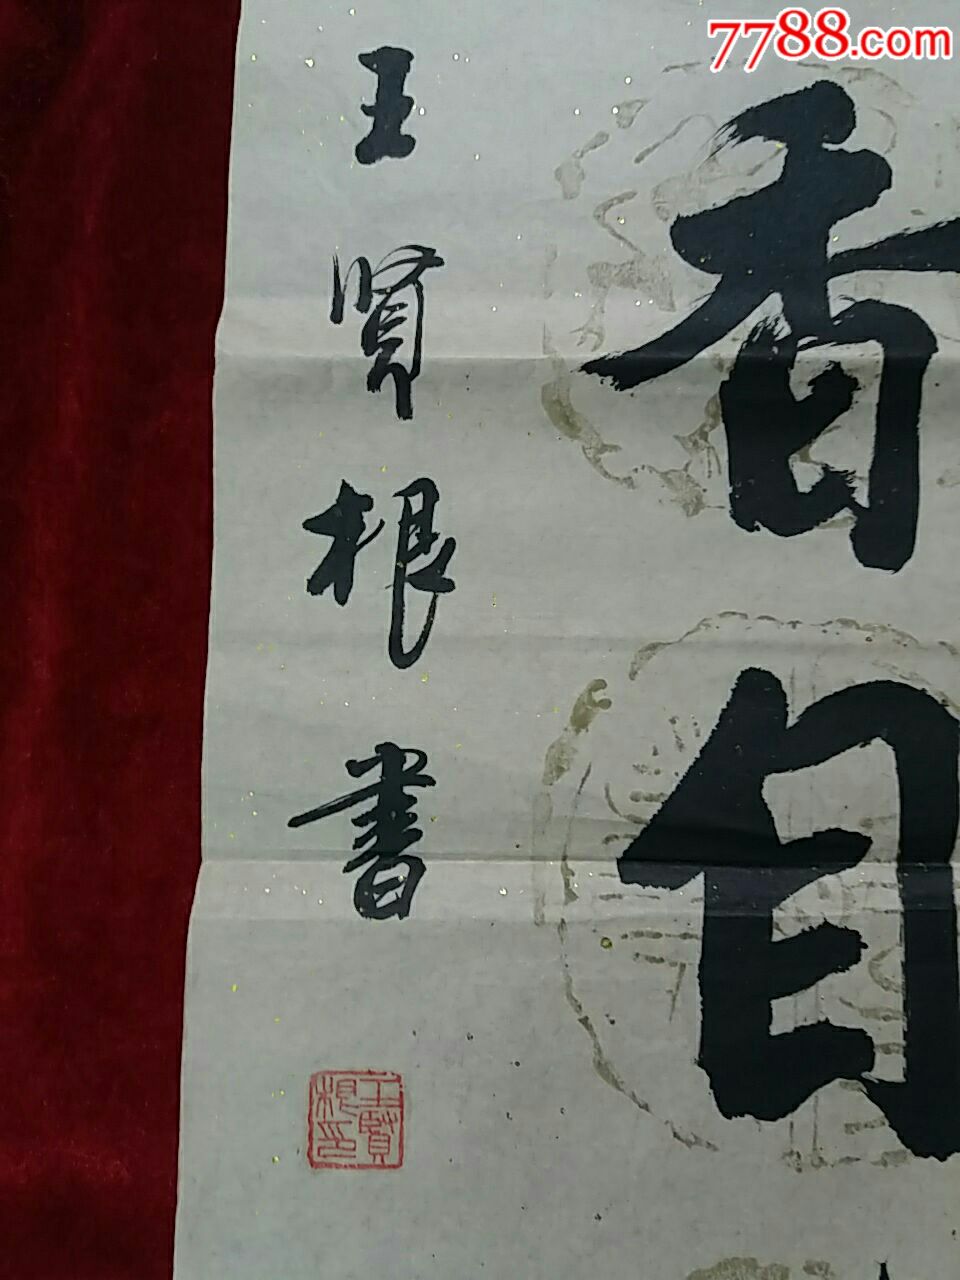 7788.com
香自
王贤根書
王賢根印